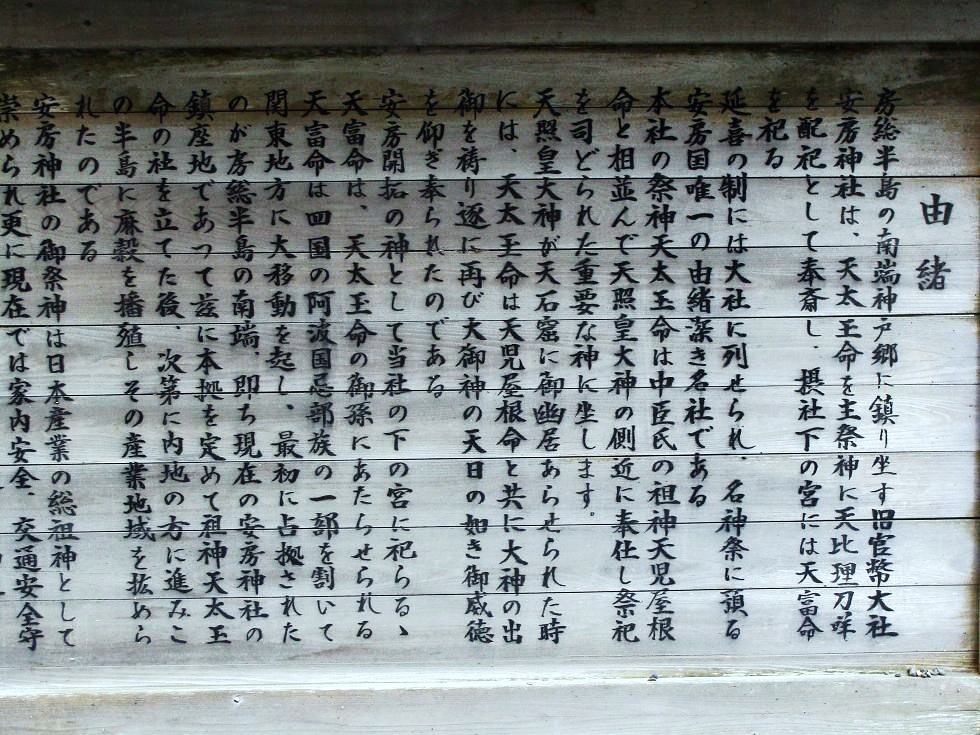 由緒
房総半島の南端神戸郷に鎮り坐す旧官幣大社
安房神社は、天太玉命を主祭神に天比理刀咩
を配祀として奉斎し、摂社下の宮には天富命
を祀る
延喜の制には大社に列せられ、名神祭に預る
安房国唯一の由緒深き名社である
本社の祭神天太玉命は中臣氏の祖神天児屋根
命と相並んで天照皇大神の側近に奉仕し祭祀
を司どられた重要な神に坐します。
天照皇大神が天石窟に御幽居あらせられた時
には、天太玉命は天児屋根命と共に大神の出
御を祷り逐に再び大御神の天日の如き御威徳
を仰ぎ奉られたのである
安房開拓の神として当社の下の宮に祀らるゝ
天富命は、天太玉命の御孫にあたらせられる
天富命は四国の阿波国忌部族の一部を割いて
関東地方に大移動を起し、最初に占拠された
のが房総半島の南端、即ち現在の安房神社の
鎮座地であつて茲に本拠を定めて祖神天太玉
命の社を立てた後、次第に内地の方に進みこ
の半島に麻穀を播殖しその産業地域を拡めら
れたのである
安房神社の御祭神は日本産業の総祖神として
崇められ更に現在では家内安全、交通安全守